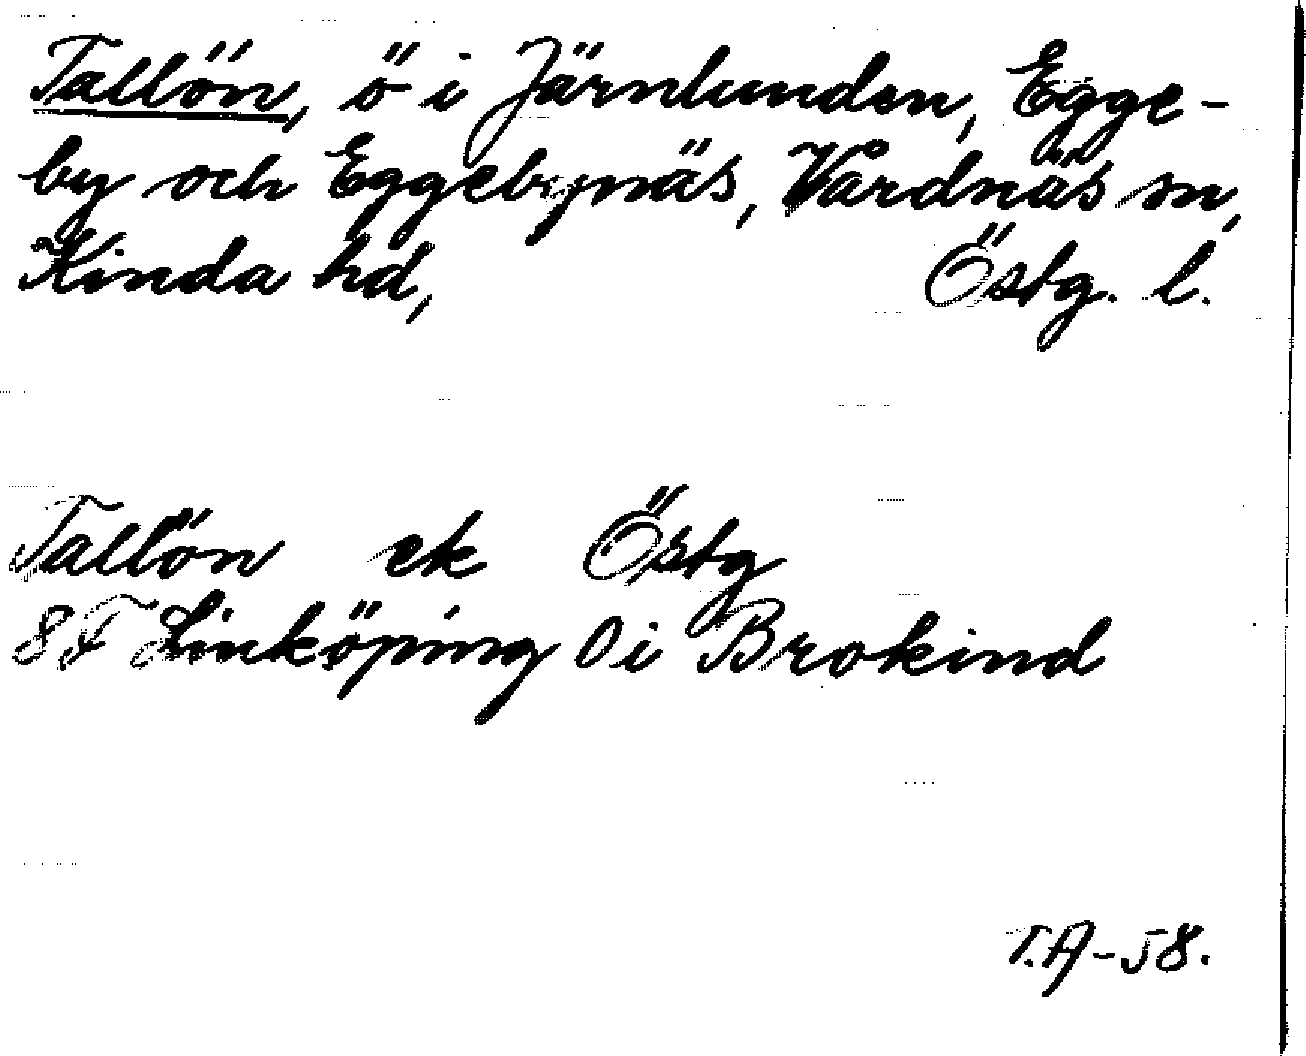 Tallön, ö i Järnlunden, Egge-
by och Eggebynäs, Vårdnäs sn,
Kinda hd, Östg. l.
Tallön ek Östg
8F Linköping 0i Brokind
T.A-58.